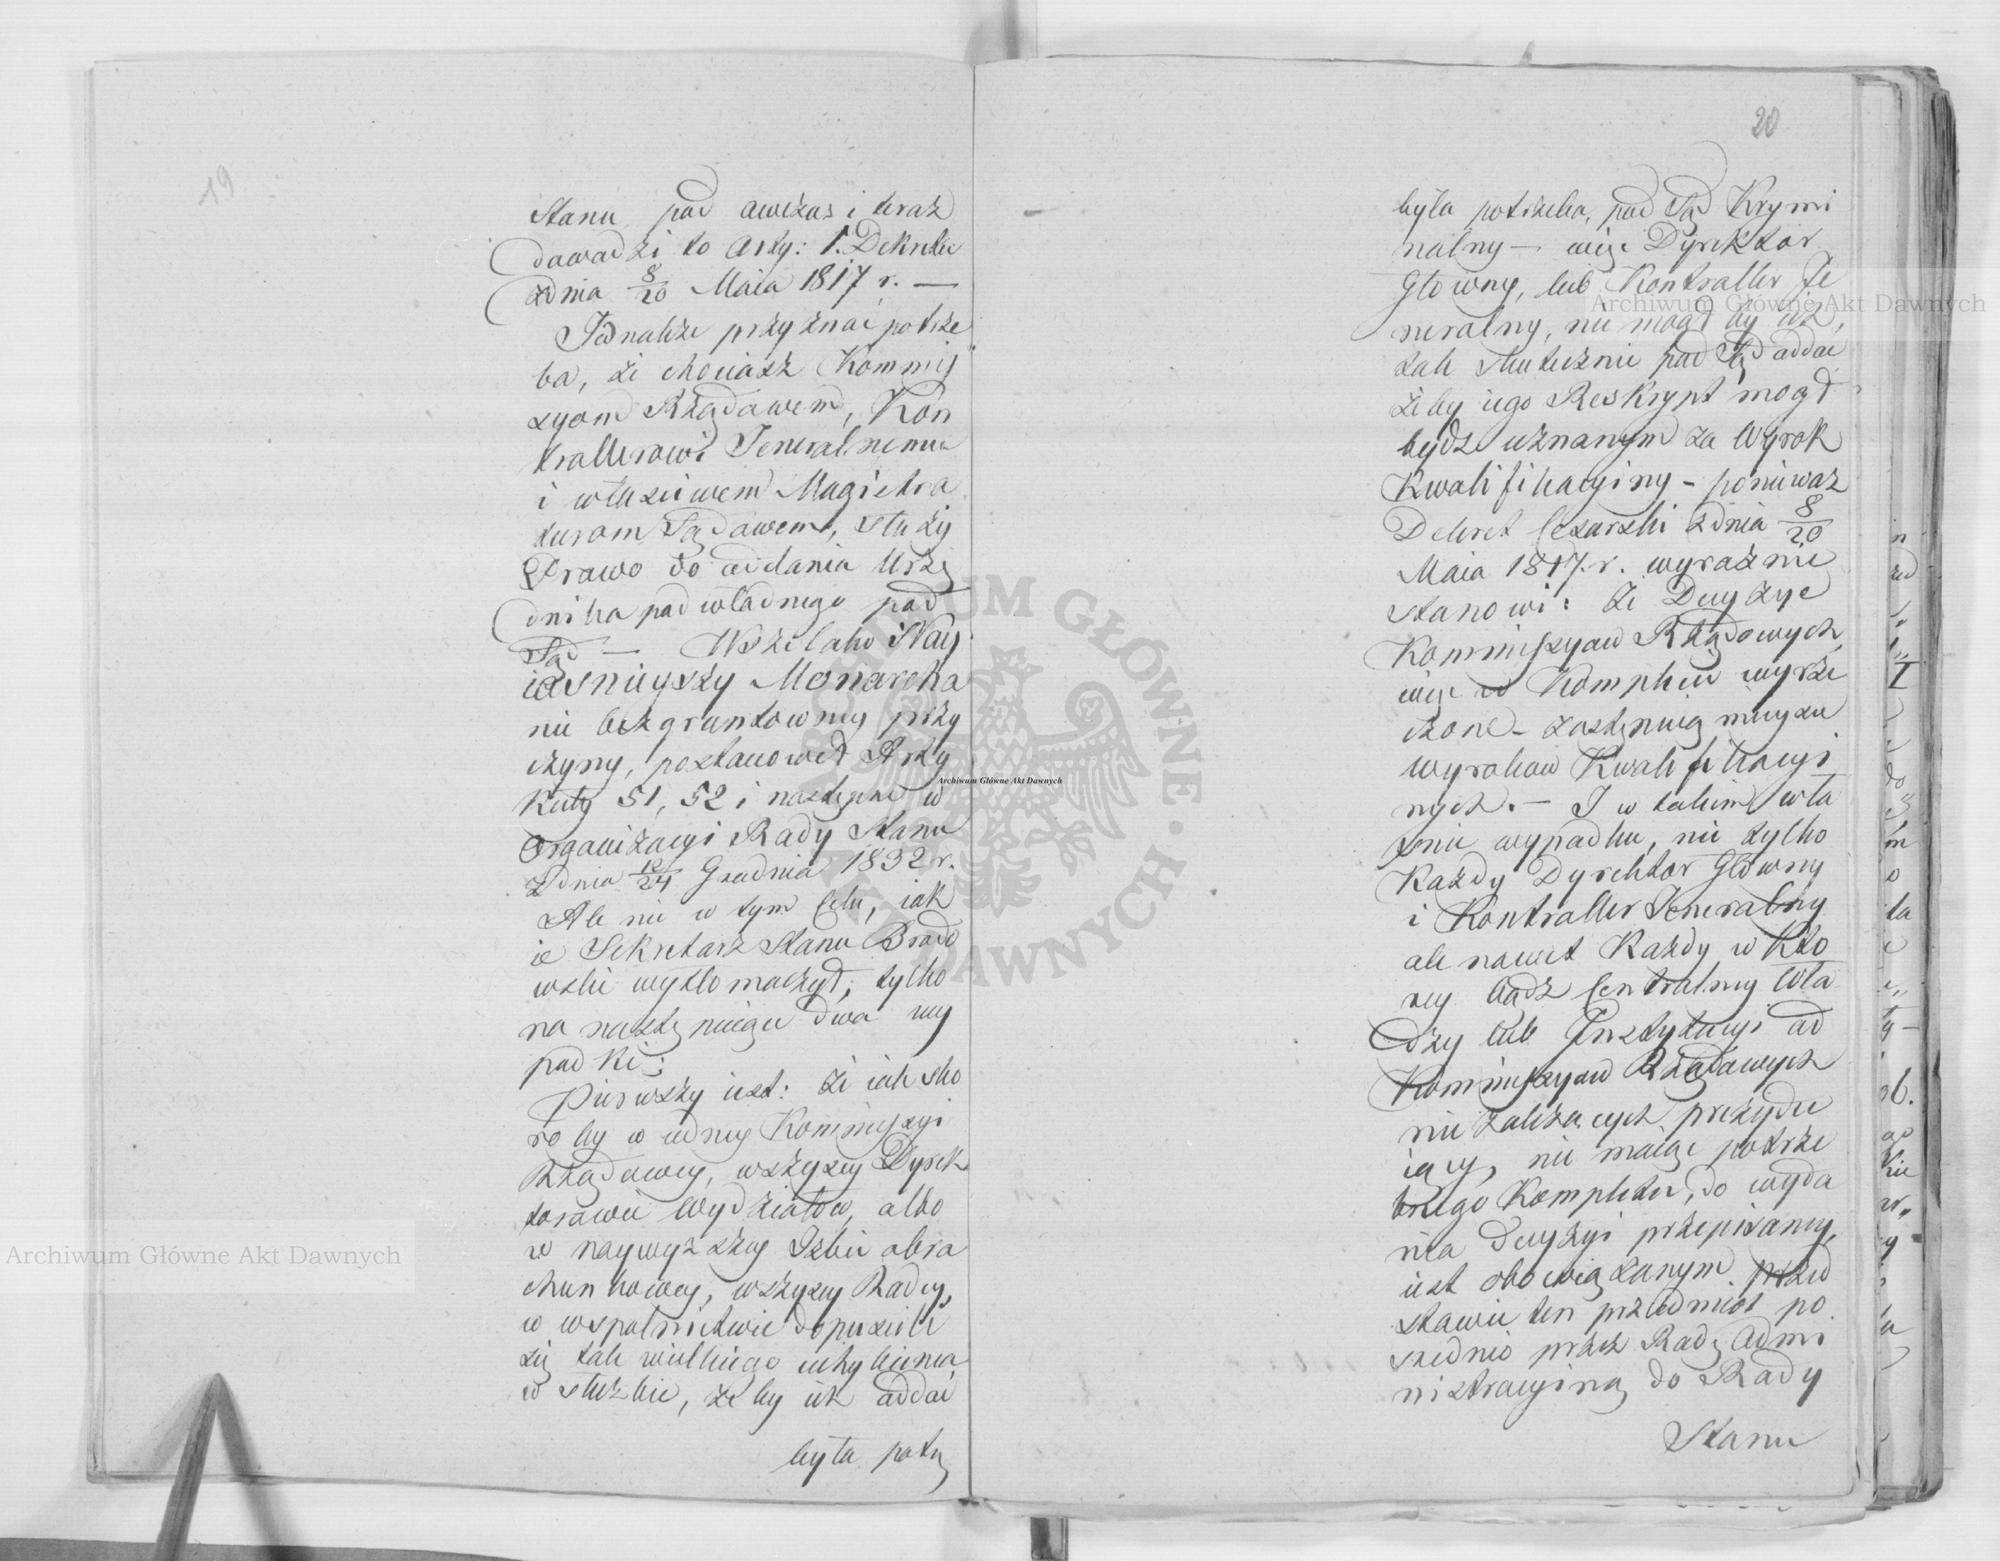 19
Stanu, pod owczas i teraz
dowodzi to Arty: 1. Dekretu
z dnia 8/20 Maia 1817 r. —
Jednakże przyznać potrze
ba, że chociasz Kommis
syom Rządowem, Kon
trollerowi Jeneralnemu
i właściwem Magistra
turom Sądowem, służy
Prawo do oddania Urzę
dnika podwładnego pod
Sąd — Wszelako Nay
iaśnieyszy Monarcha
nie bezgruntowney przy
czyny, postanowił Arty
kuły 51, 52 i następne w
Organizacyi Rady Stanu
z dnia 12/24 Grudnia 1832 r.
Ale nie w tym Celu, iak
ie Sekretarz Stanu Brodo
wski wytłomaczył, tylko
na następuiące dwa wy
padki:
Pierwszy iest: że iak sko
ro by w iedney Kommissyi
Rządowey, wszyscy Dyrek
torowie Wydziałow, albo
w naywyższey Izbie obra
chunkowey, wszyscy Radcy,
w wspolnictwie dopuścili
się tak wielkiego uchybienia
w służbie, że by ich oddać
była potrz
20
była potrzeba, pod Sąd Krymi
nalny — więc Dyrektor
Głowny, lub Kontroller Je
neralny, nie mogł by ich,
tak skutecznie pod Sąd oddać
żeby iego Reskrypt mogł
bydź uznanym za Wyrok
Kwalifikacyiny – ponieważ
Dekret Cesarski z dnia 8/20
Maia 1817. r. wyraźnie
stanowi: że Decyzye
Kommissyow Rządowych,
więc w Komplecie wyrze
czone – zastępuią mieysce
wyrokow Kwalifikacyi
nych. — I w takim wła
śnie wypadku, nie tylko
Każdy Dyrektor Głowny
i Kontroller Jeneralny
ale nawet Każdy w Kto
rey bądź Centralney Wła
dzy lub Instytucyi od
Kommissyow Rządowych
nie zależących prezydu
iący, nie maiąc potrze
bnego Kompletu, do wyda
nia decyzyi przepisaney,
iest obowiązanym przed
stawić ten przedmiot po
średnio przez Radę Admi
nistracyiną do Rady
Stanu
Archiwum Główne Akt Dawnych
Archiwum Główne Akt Dawnych
Archiwum Główne Akt Dawnych
ARCHIWUM GŁÓWNE AKT DAWNYCH